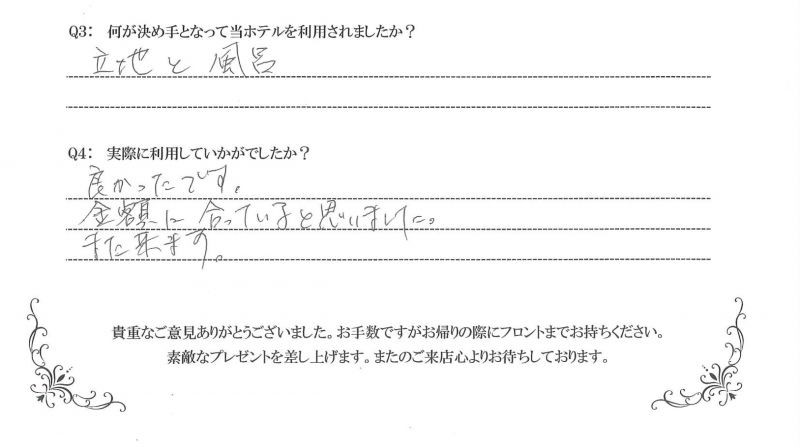 Q3： 何が決め手となって当ホテルを利用されましたか？
立地と風呂
Q4： 実際に利用していかがでしたか？
良かったです。
金額に合っていると思いました。
また来ます。
貴重なご意見ありがとうございました。お手数ですがお帰りの際にフロントまでお持ちください。
素敵なプレゼントを差し上げます。またのご来店心よりお待ちしております。